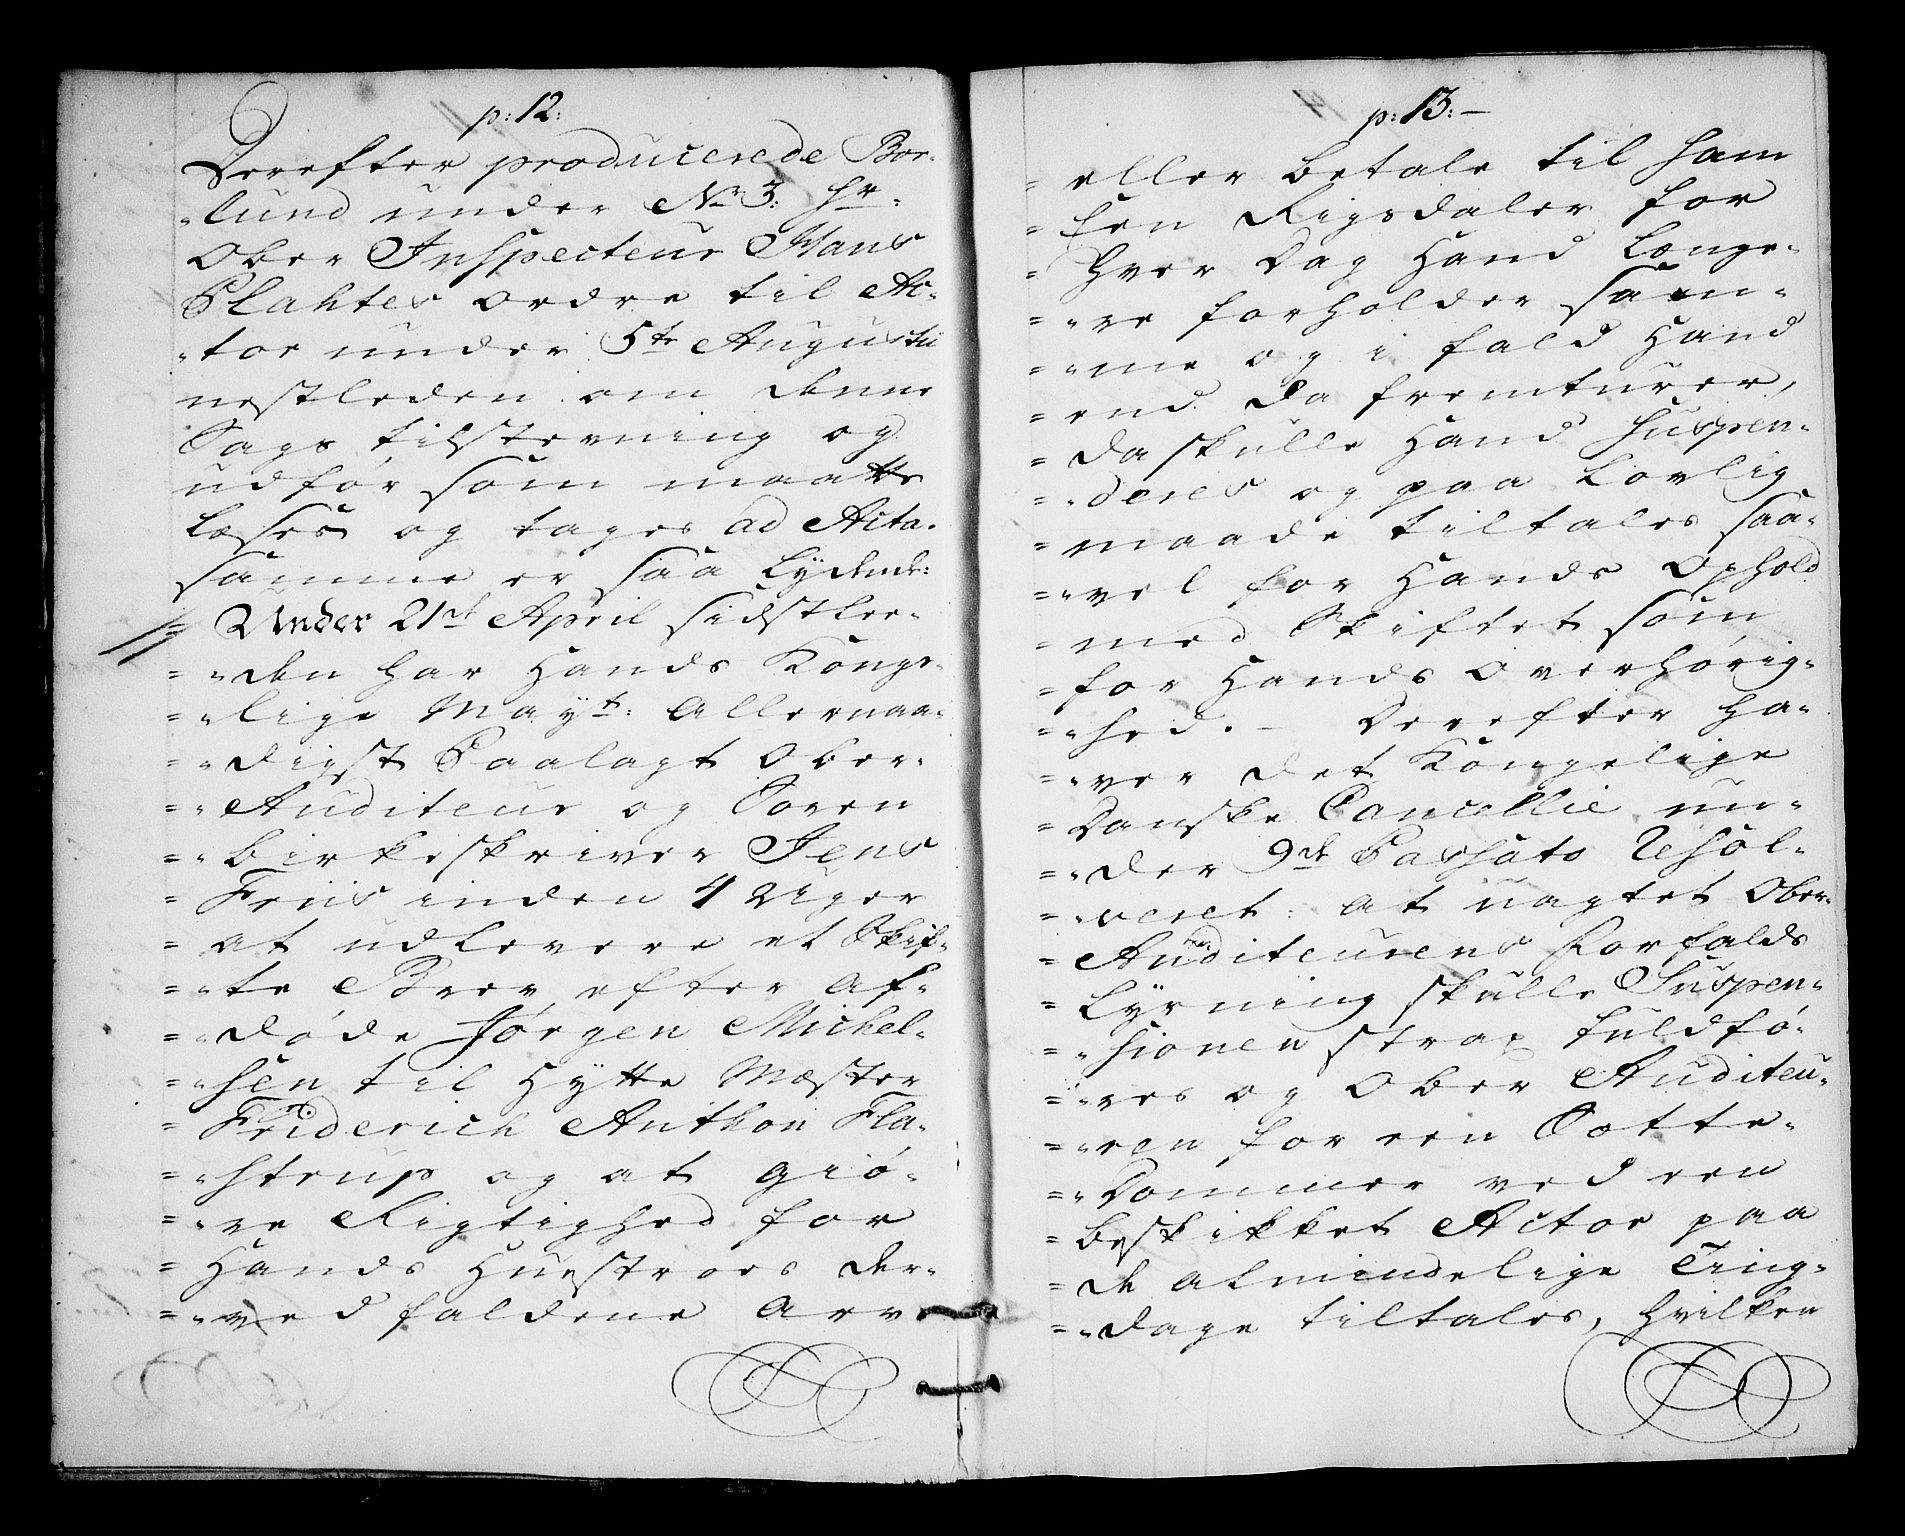 p: 12.
Derefter producerede Bor-
lund under No 3: Hr.
Ober Inspecteur Hans
Plahtes ordre til Ac-
tor under 5te Augustii
nestleden om denne
Sags tilstevning og
udfør som maatte
læses og tages ad Acta.
samme er saa lydende:
Under 21de April sidstlee-
den har Hands Konge-
lige Mayt: Allernaa-
digst Paalagt Ober-
Auditeur og Soren
birkeskriver Jens
Friis inden 4 Uger
at udlevere et Skif-
te Brev efter af-
døde Jørgen Michel-
sen til Hytte Mester
Friderich Anthon Fla-
strup og at giø-
re Rigtighed for
Hands Huustroes der-
ved faldene Arv
p: 13: -
eller betale til ham
Een Rigsdaler for
hver Dag Hand læng-
re forholder sam-
me og i fald Hand
end da fremturer,
da skulle Hand suspen-
deres og paa lovlig
maade tiltales saa-
vel for Hands Ophold
med Skiftet som
for Hands Overhørig-
hed. - Derefter ha-
ver det Kongelige
Danske Cancellie un-
der 9de Passato resol-
veret: at uagtet Ober-
Auditeurens Forfalds
lysning skulle Suspen-
sionen strax fuldfø-
res og Ober Auditeu-
ren for een Sotte-
Dommer ved een
beskikket Actor paa
de almindelige Ting-
dage tiltales, hvilken